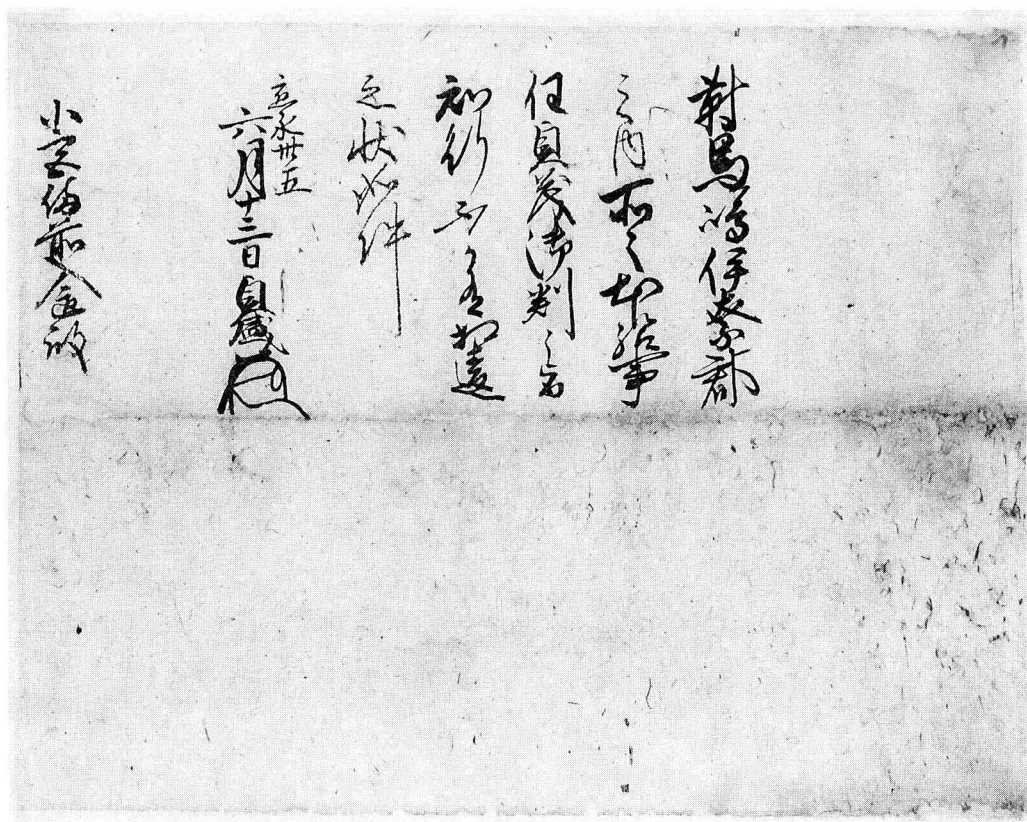 對馬嶋伊奈郡
之内所々本給事
任貞茂御判之旨
知行不可有相違
之状如件
応永卅五
六月十三日 貞盛
小宮備前入道殿